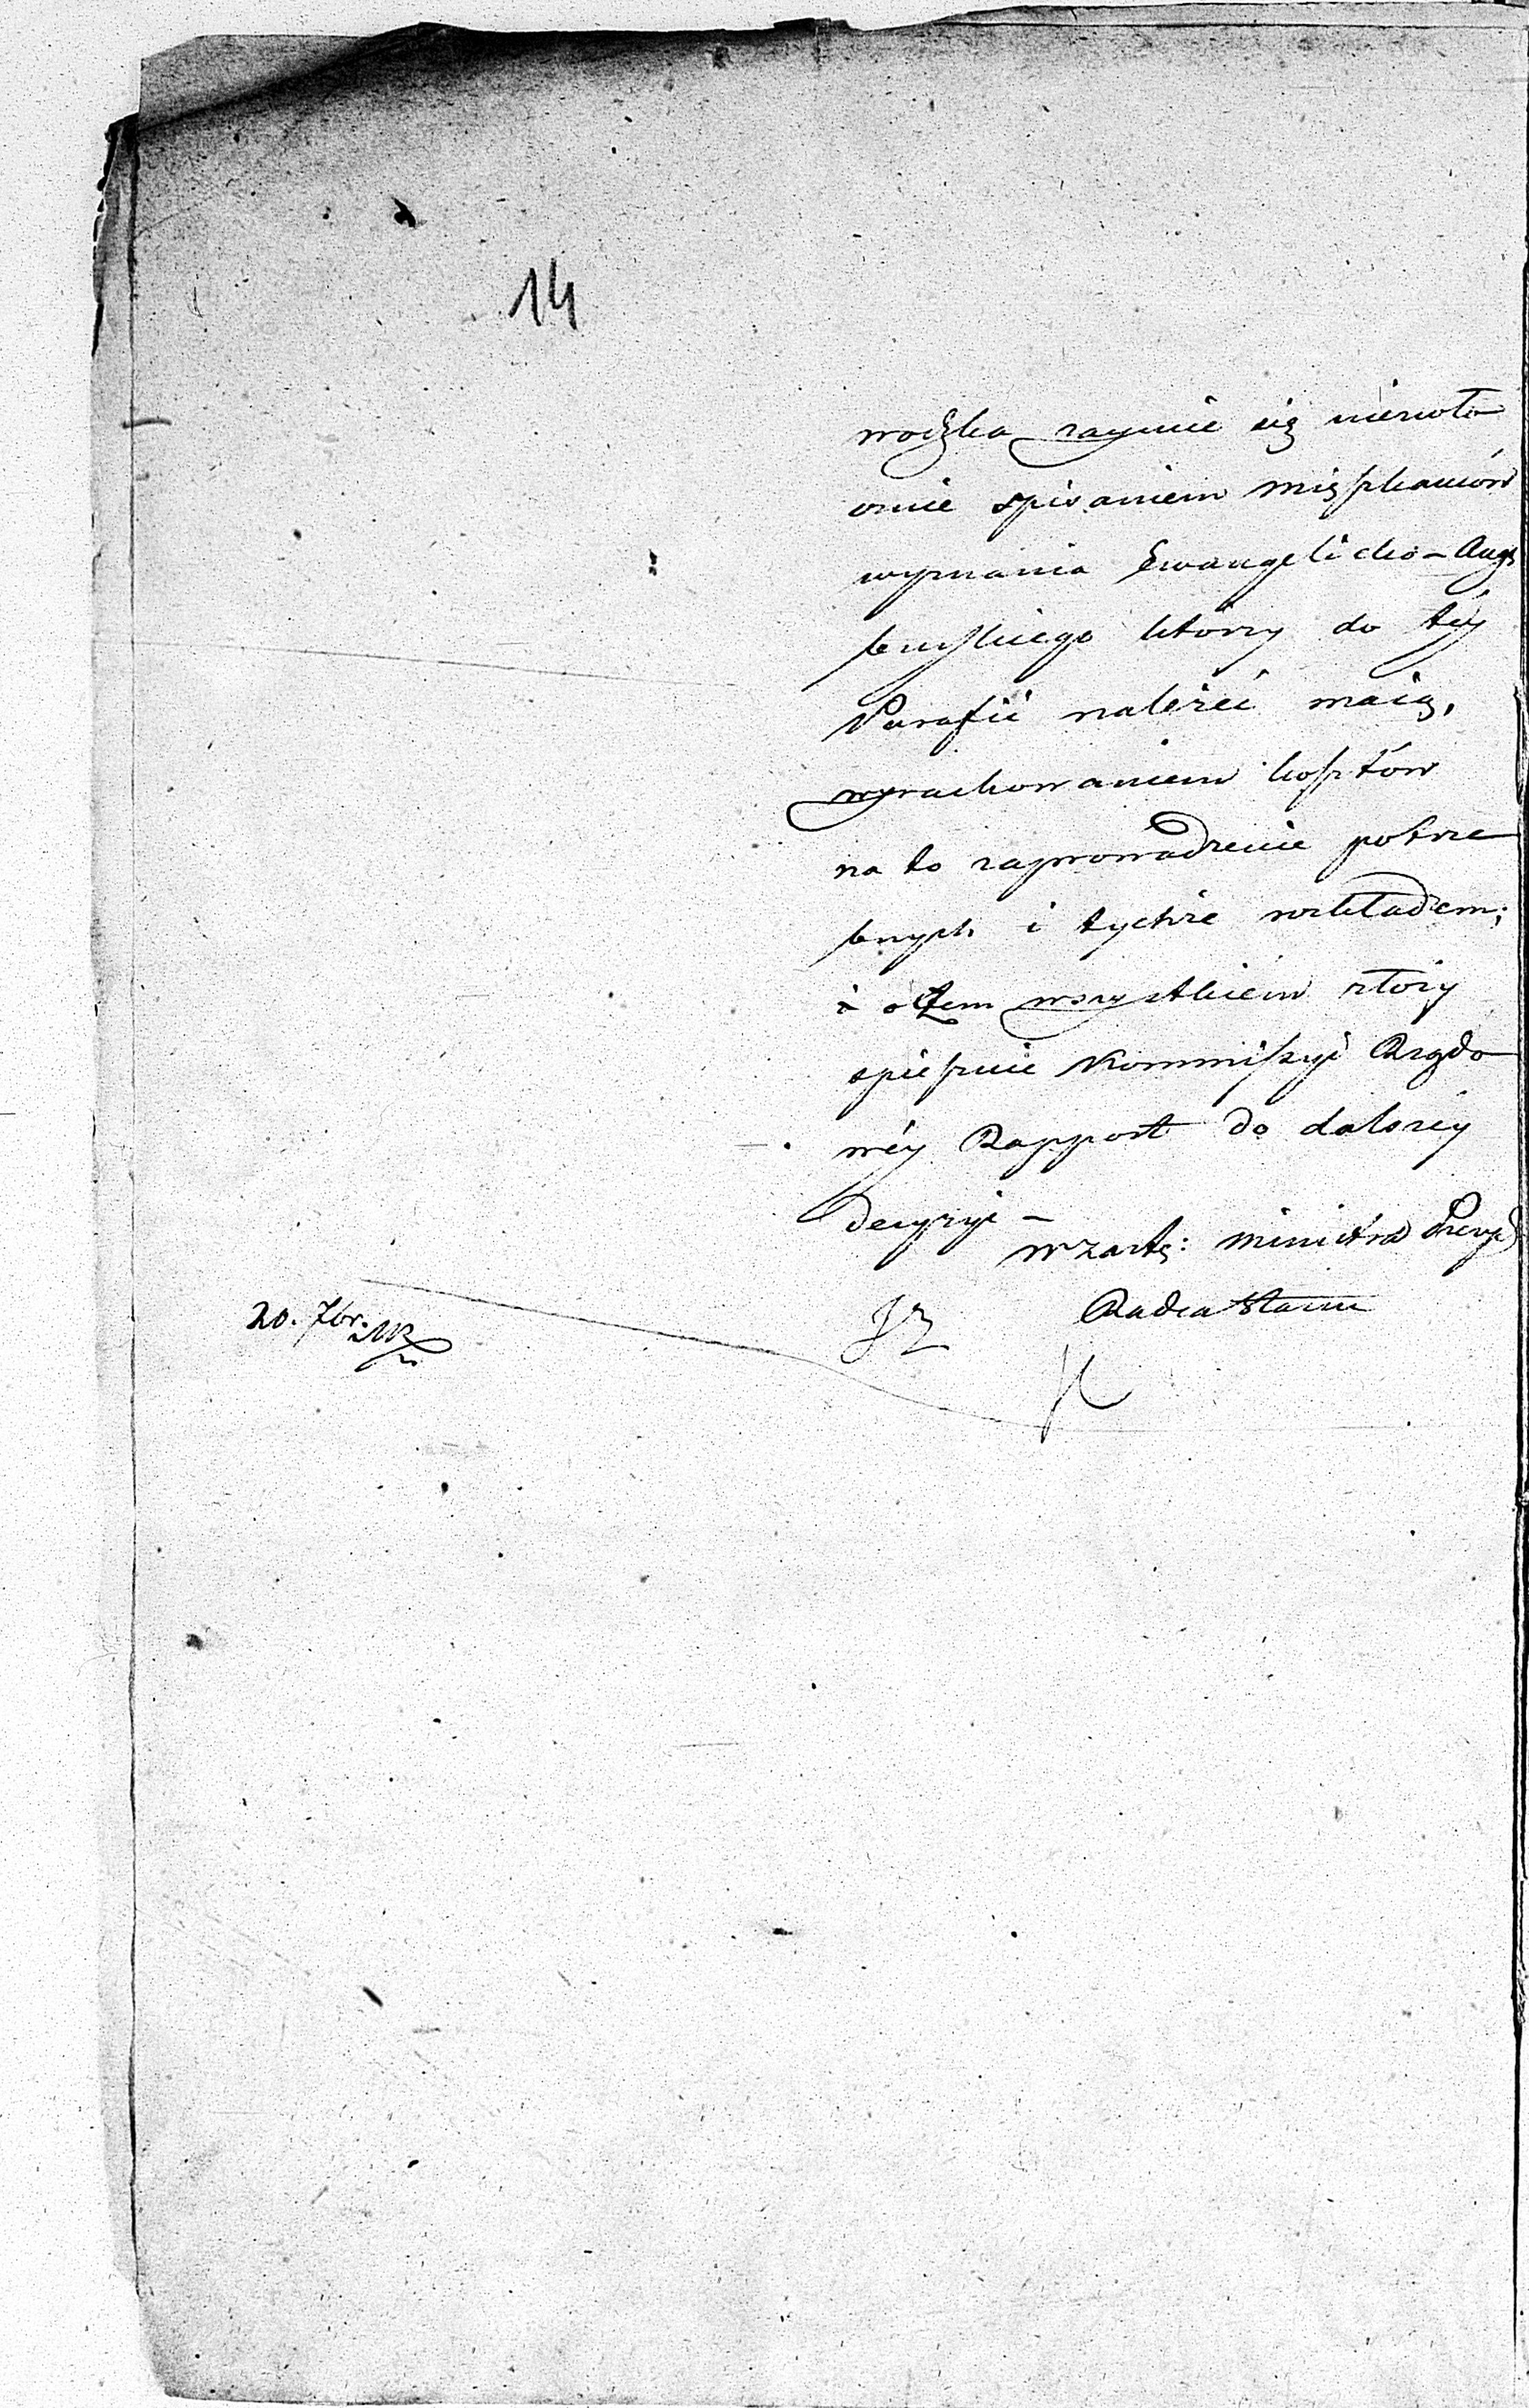 14
wodzka zaymie się niezwło
cznie spisaniem mięszkańców
wyznania Ewangelicko-Augs
burskiego którzy do téy
Parafii należéć maią,
wyrachowaniem kosztów
na to zaprowadzenie potrze
bnych i tychże rozkładem;
i o tem wszystkiem złoży
spiesznie Kommissyi Rządo
wéy Rapport do dalszéy
decyzyi –
w zastę: Ministra Prezyd
Radca Stanu
20. 7br.